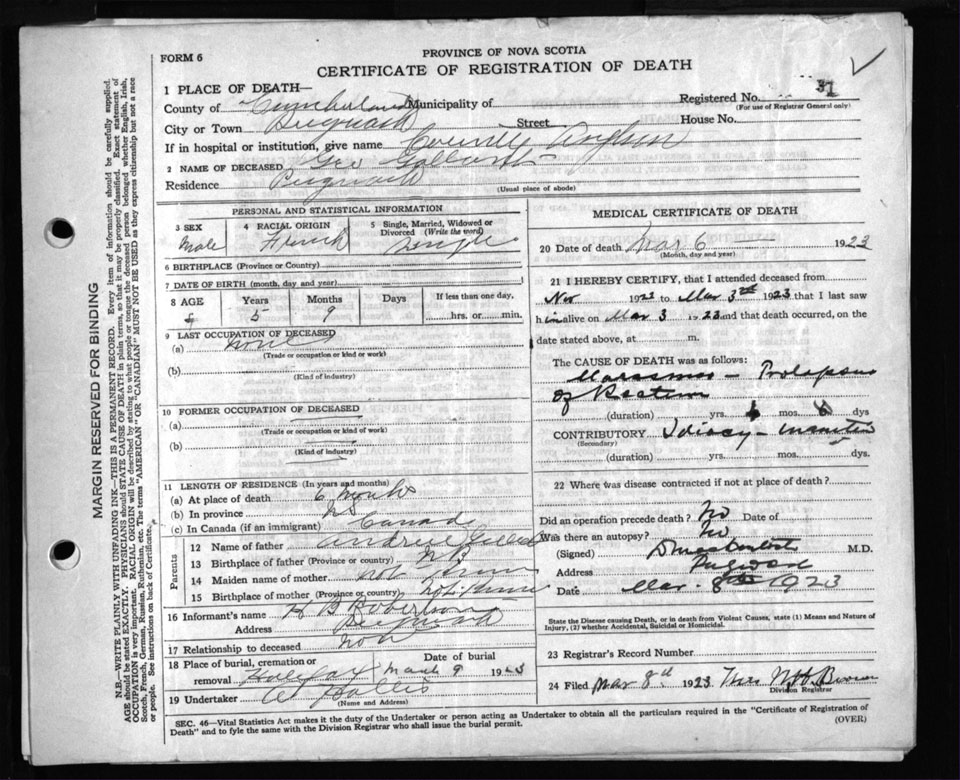 FORM 6
PROVINCE OF NOVA SCOTIA
CERTIFICATE OF REGISTRATION OF DEATH
31
1 PLACE OF DEATH—
County of Cumberland Municipality of
Registered No.
(For use of Registrar General only)
City or Town Pugwash Street House No.
If in hospital or institution, give name County Asylum
2 NAME OF DECEASED Geo Gallant
Residence Pugwash
(Usual place of abode)
PERSONAL AND STATISTICAL INFORMATION
3 SEX
Male
4 RACIAL ORIGIN
French
5 Single, Married, Widowed or Divorced (Write the word)
Single
6 BIRTHPLACE (Province or Country)
7 DATE OF BIRTH (month, day and year)
8 AGE Years Months Days If less than one day,
5 9 hrs. or min.
9 LAST OCCUPATION OF DECEASED
(a) none
(Trade or occupation or kind or work)
(b)
(Kind of industry)
10 FORMER OCCUPATION OF DECEASED
(a)
(Trade or occupation or kind of work)
(b)
(Kind of industry)
11 LENGTH OF RESIDENCE (In years and months)
(a) At place of death 6 Months
(b) In province NS
(c) In Canada (if an immigrant) Canada
Parents
12 Name of father
13 Birthplace of father (Province or country) NB
14 Maiden name of mother not known
15 Birthplace of mother (Province or country) not known
16 Informant's name H B Robertson
Address Pugwash
17 Relationship to deceased not
18 Place of burial, cremation or removal Halifax
Date of burial
March 9 1923
19 Undertaker W Hollis
(Name and Address)
MEDICAL CERTIFICATE OF DEATH
20 Date of death Mar 6 1923
(Month, day and year)
21 I HEREBY CERTIFY, that I attended deceased from
Nov 1922 to Mar 3rd 1923 that I last saw
him alive on Mar 3 1923 and that death occurred, on the
date stated above, at m.
The CAUSE OF DEATH was as follows:
Marasmus — Prolapsus
of Rectum
(duration) yrs. 6 mos. dys
CONTRIBUTORY Idiocy —
(Secondary)
(duration) yrs. mos. dys.
22 Where was disease contracted if not at place of death?
Did an operation precede death? No Date of
Was there an autopsy? No
(Signed) M.D.
Address Pugwash
Date Mar. 8th 1923
State the Disease causing Death, or in death from Violent Causes, state (1) Means and Nature of
Injury, (2) whether Accidental, Suicidal or Homicidal.
23 Registrar's Record Number
24 Filed Mar 8th 1923 Brown
Division Registrar
SEC. 46—Vital Statistics Act makes it the duty of the Undertaker or person acting as Undertaker to obtain all the particulars required in the "Certificate of Registration of
Death" and to fyle the same with the Division Registrar who shall issue the burial permit.
(OVER)
MARGIN RESERVED FOR BINDING
N.B.—WRITE PLAINLY WITH UNFADING INK—THIS IS A PERMANENT RECORD. Every item of information should be carefully supplied.
AGE should be stated EXACTLY. PHYSICIANS should STATE CAUSE OF DEATH in plain terms, so that it may be properly classified. Exact statement of
OCCUPATION is very important. RACIAL ORIGIN will be described by stating to what people or tongue the deceased person belonged whether English, Irish,
Scotch, French, German, Russian, Ruthenian, etc. The terms "AMERICAN" OR "CANADIAN" MUST NOT BE USED as they express citizenship but not a race
or people. See instructions on back of Certificate.